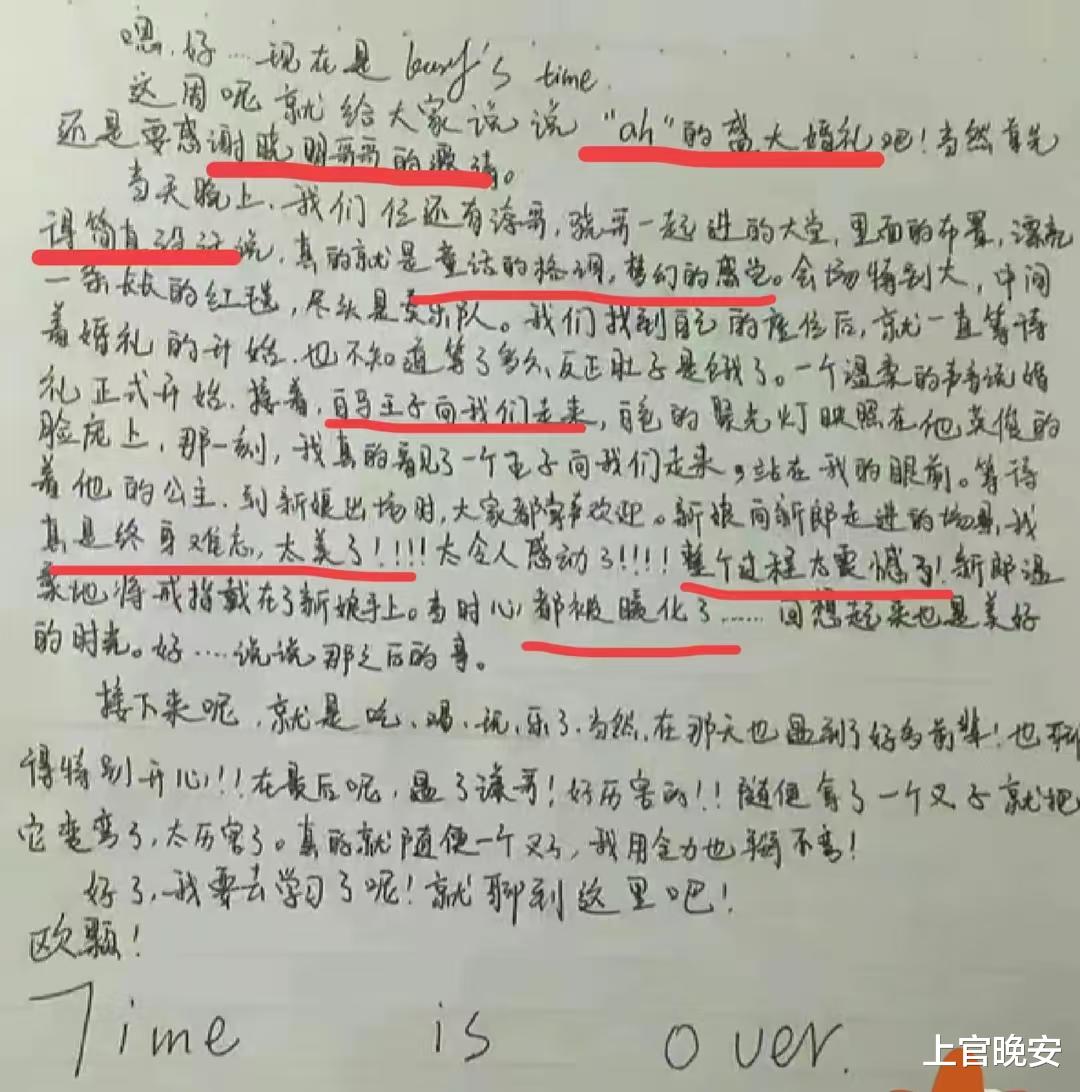 嗯,好……现在是 karry's time.
这周呢就给大家说说"ah"的盛大婚礼吧!当然首先
还是要感谢晓明哥哥的邀请。
当天晚上,我们 还有涛哥,骁哥一起进的大堂,里面的布置,漂亮
得简直没话说,真的就是童话的格调,梦幻的感觉。会场特别大,中间
一条长长的红毯,尽头是交乐队。我们找到自己的座位后,就一直等待
着婚礼的开始,也不知道等了多久,反正肚子是饿了。一个温柔的声音说婚
礼正式开始,接着,白马王子向我们走来,白色的聚光灯映照在他英俊的
脸庞上,那一刻,我真的看见了一个王子向我们走来,站在我的眼前。等待
着他的公主,到新娘出场时,大家都掌声欢迎。新娘向新郎走进的场景,我
真是终身难忘,太美了!!!!太令人感动了!!!!整个过程太震憾了!新郎温
柔地将戒指戴在了新娘手上。当时心都被暖化了……回想起来也是美好
的时光。好……说说那之后的事。
接下来呢,就是吃、喝、玩、乐了,当然,在那天也遇到了好多前辈!也聊
得特别开心!!在最后呢,遇了涛哥!好厉害的!!随便拿了一个叉子就把
它变弯了,太厉害了。真的就随便一个叉子,我用全力也掰不弯!
好了,我要去学习了呢!就聊到这里吧!
欧颗!
Time is over.
上官晚安